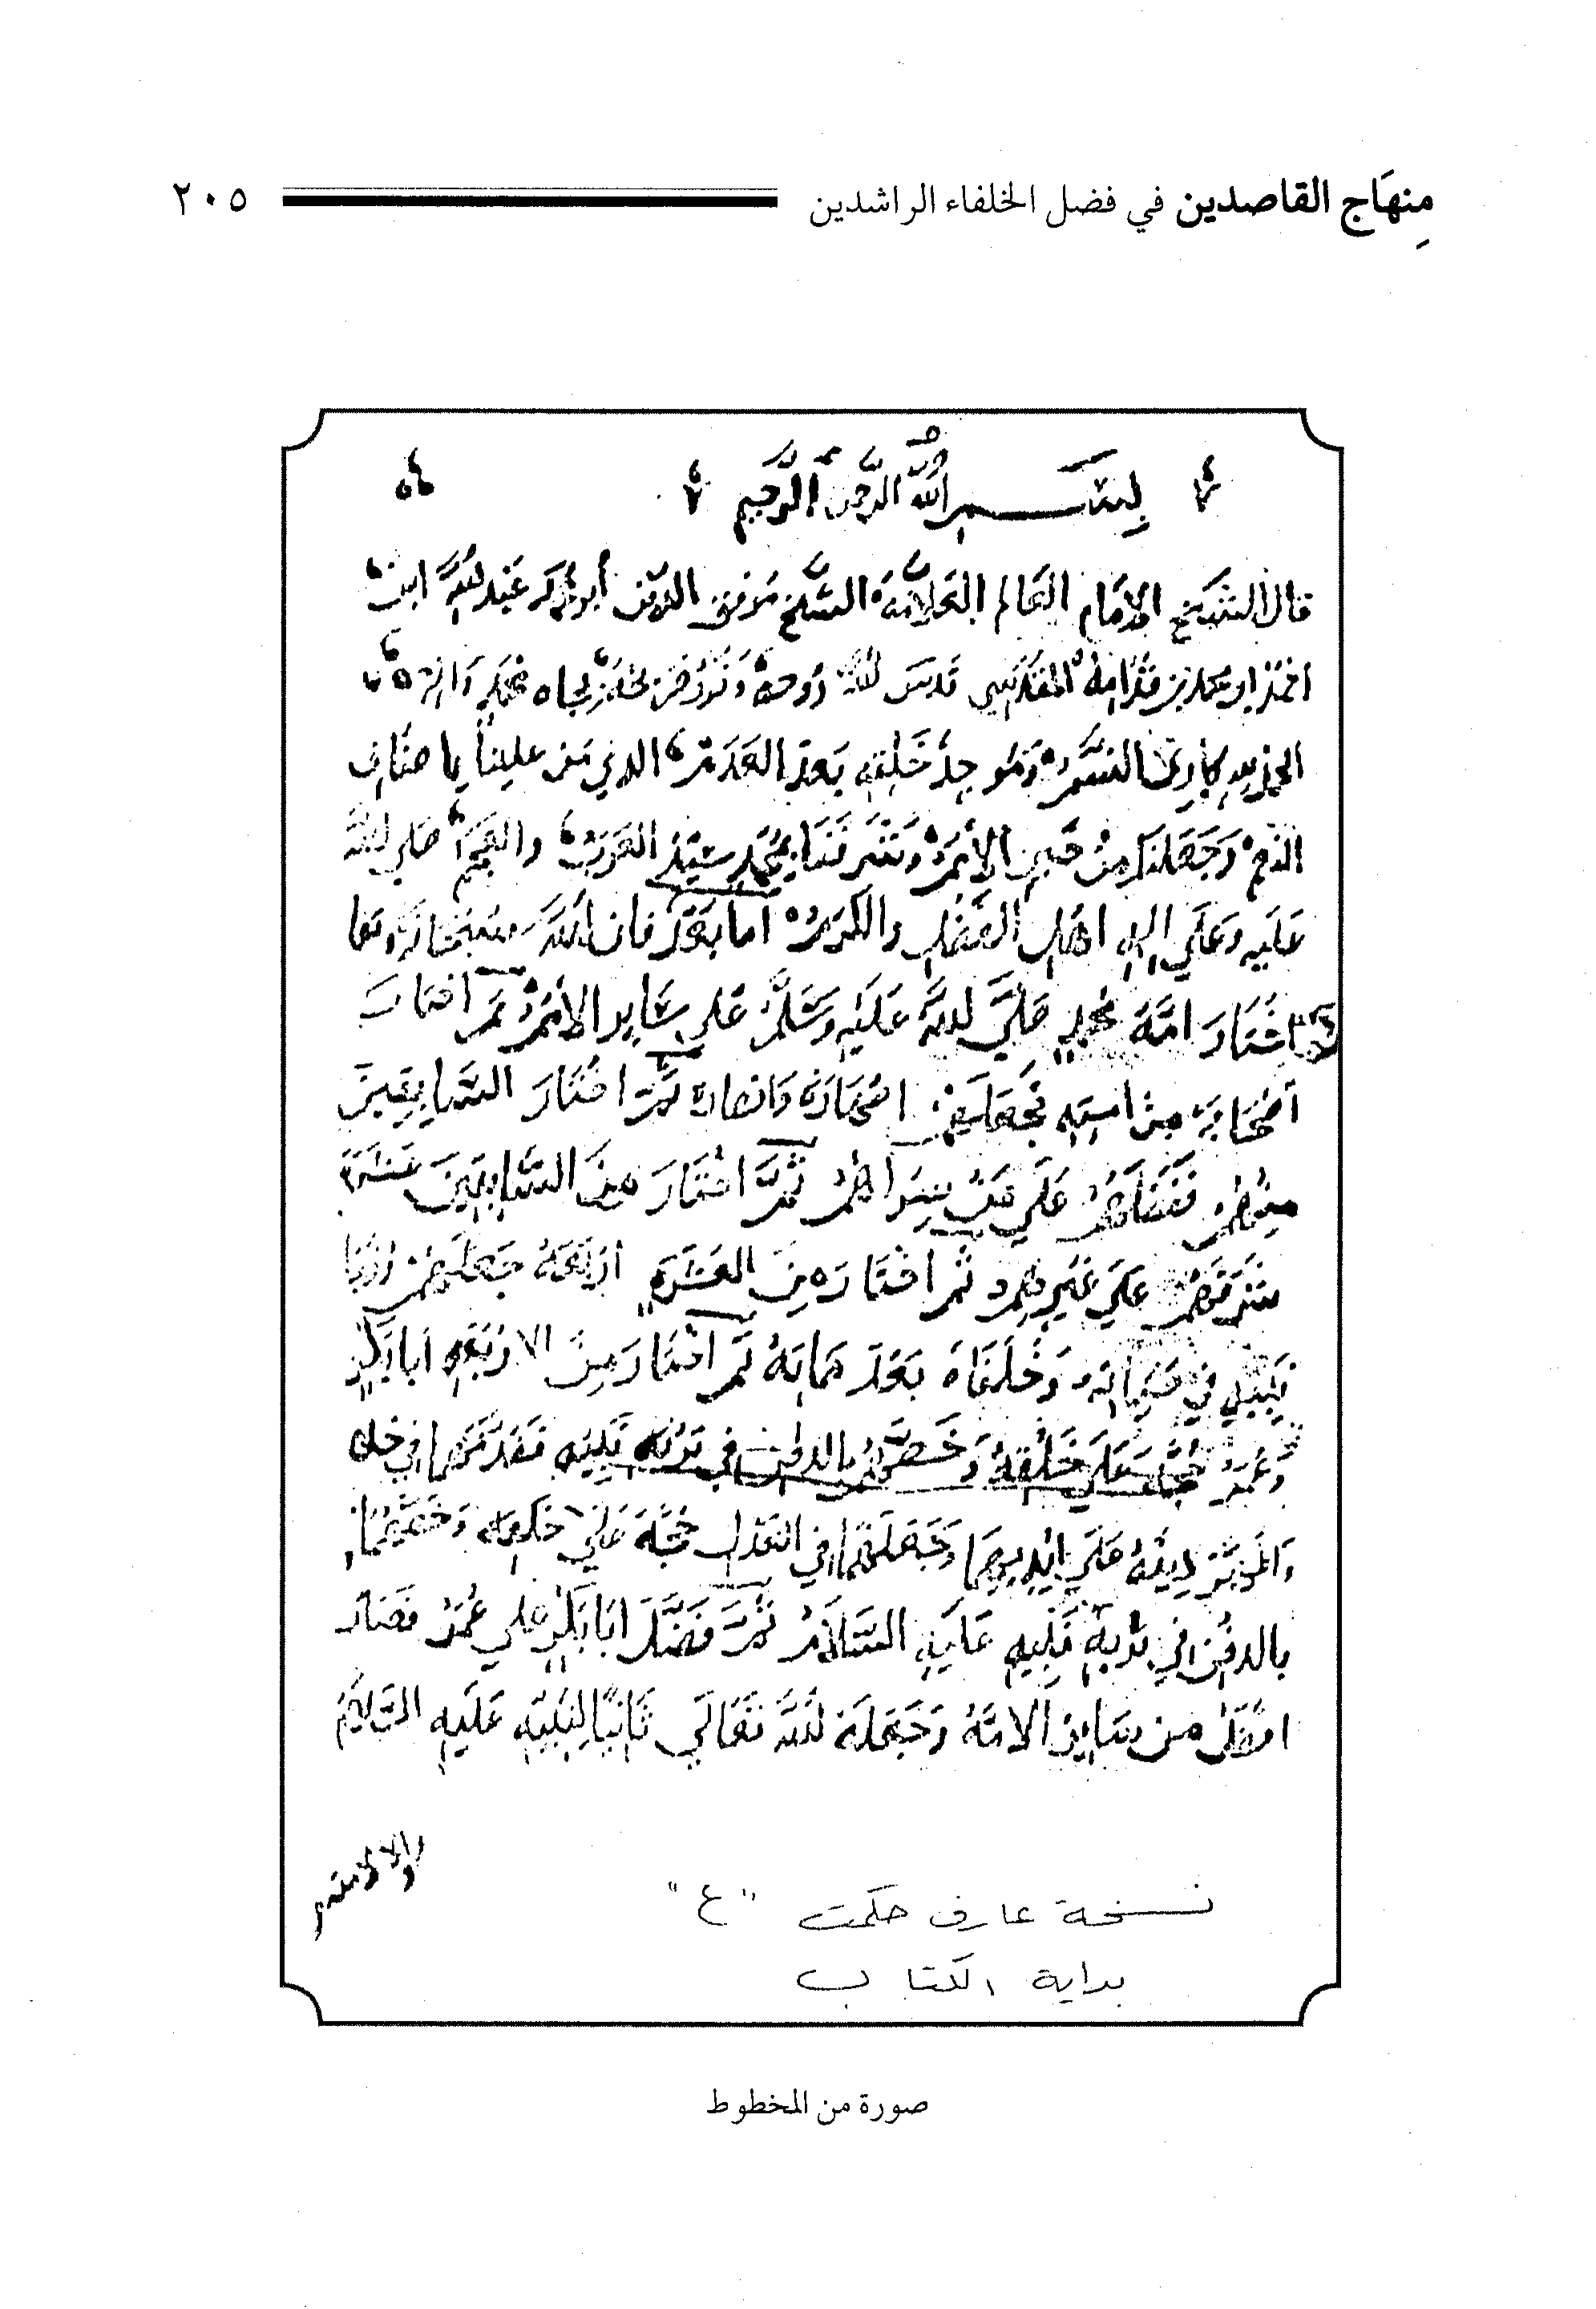 مِنهَاج القاصدين في فضل الخلفاء الراشدين ٢٠٥
بسم الله الرحمن الرحيم
قال الشيخ الامام العالم العلامة الشيخ موفق الدين أبو محمد عبد الله ابن
احمد بن محمد بن قدامة المقدسي قدس الله روحه ونور ضريحه بجاه محمد واله
الحمد لله باري النسم وموجد خلقه بعد العدم الذي من علينا باصناف
النعم وجعلنا من خير الأمم وشرفنا بمحمد سيد العرب والعجم صلى الله
عليه وعلي اله اهل الفضل والكرم اما بعد فان الله سبحانه وتعا
اختار امة محمد صلى الله عليه وسلم علي ساير الأمم ثم اختار
أصحابه من امته فجعلهم اصهاره وانصاره ثم اختار السابقين
منهم ففضلهم علي من سواهم ثم اختار من السابقين عشرة
شرفهم علي غيرهم ثم اختار من العشرة اربعة جعلهم
في حياته وخلفاه بعد مماته ثم اختار من الاربعة ابا بكر
وعمر علي خلقه وخصهم بالدفن في تربة نبيه فقدمهما في
دينه علي ايديهما وجعلهما في العدل حجة علي خلقه وخصهما
بالدفن في تربة نبيه عليه السلام ثم فضل ابا بكر علي عمر فصار
افضل من ساير الامة وجعله الله تعالي ثانيا لنبيه عليه السلام
نسخة عارف حكمت "ع"
بداية الكتاب
صورة من المخطوط